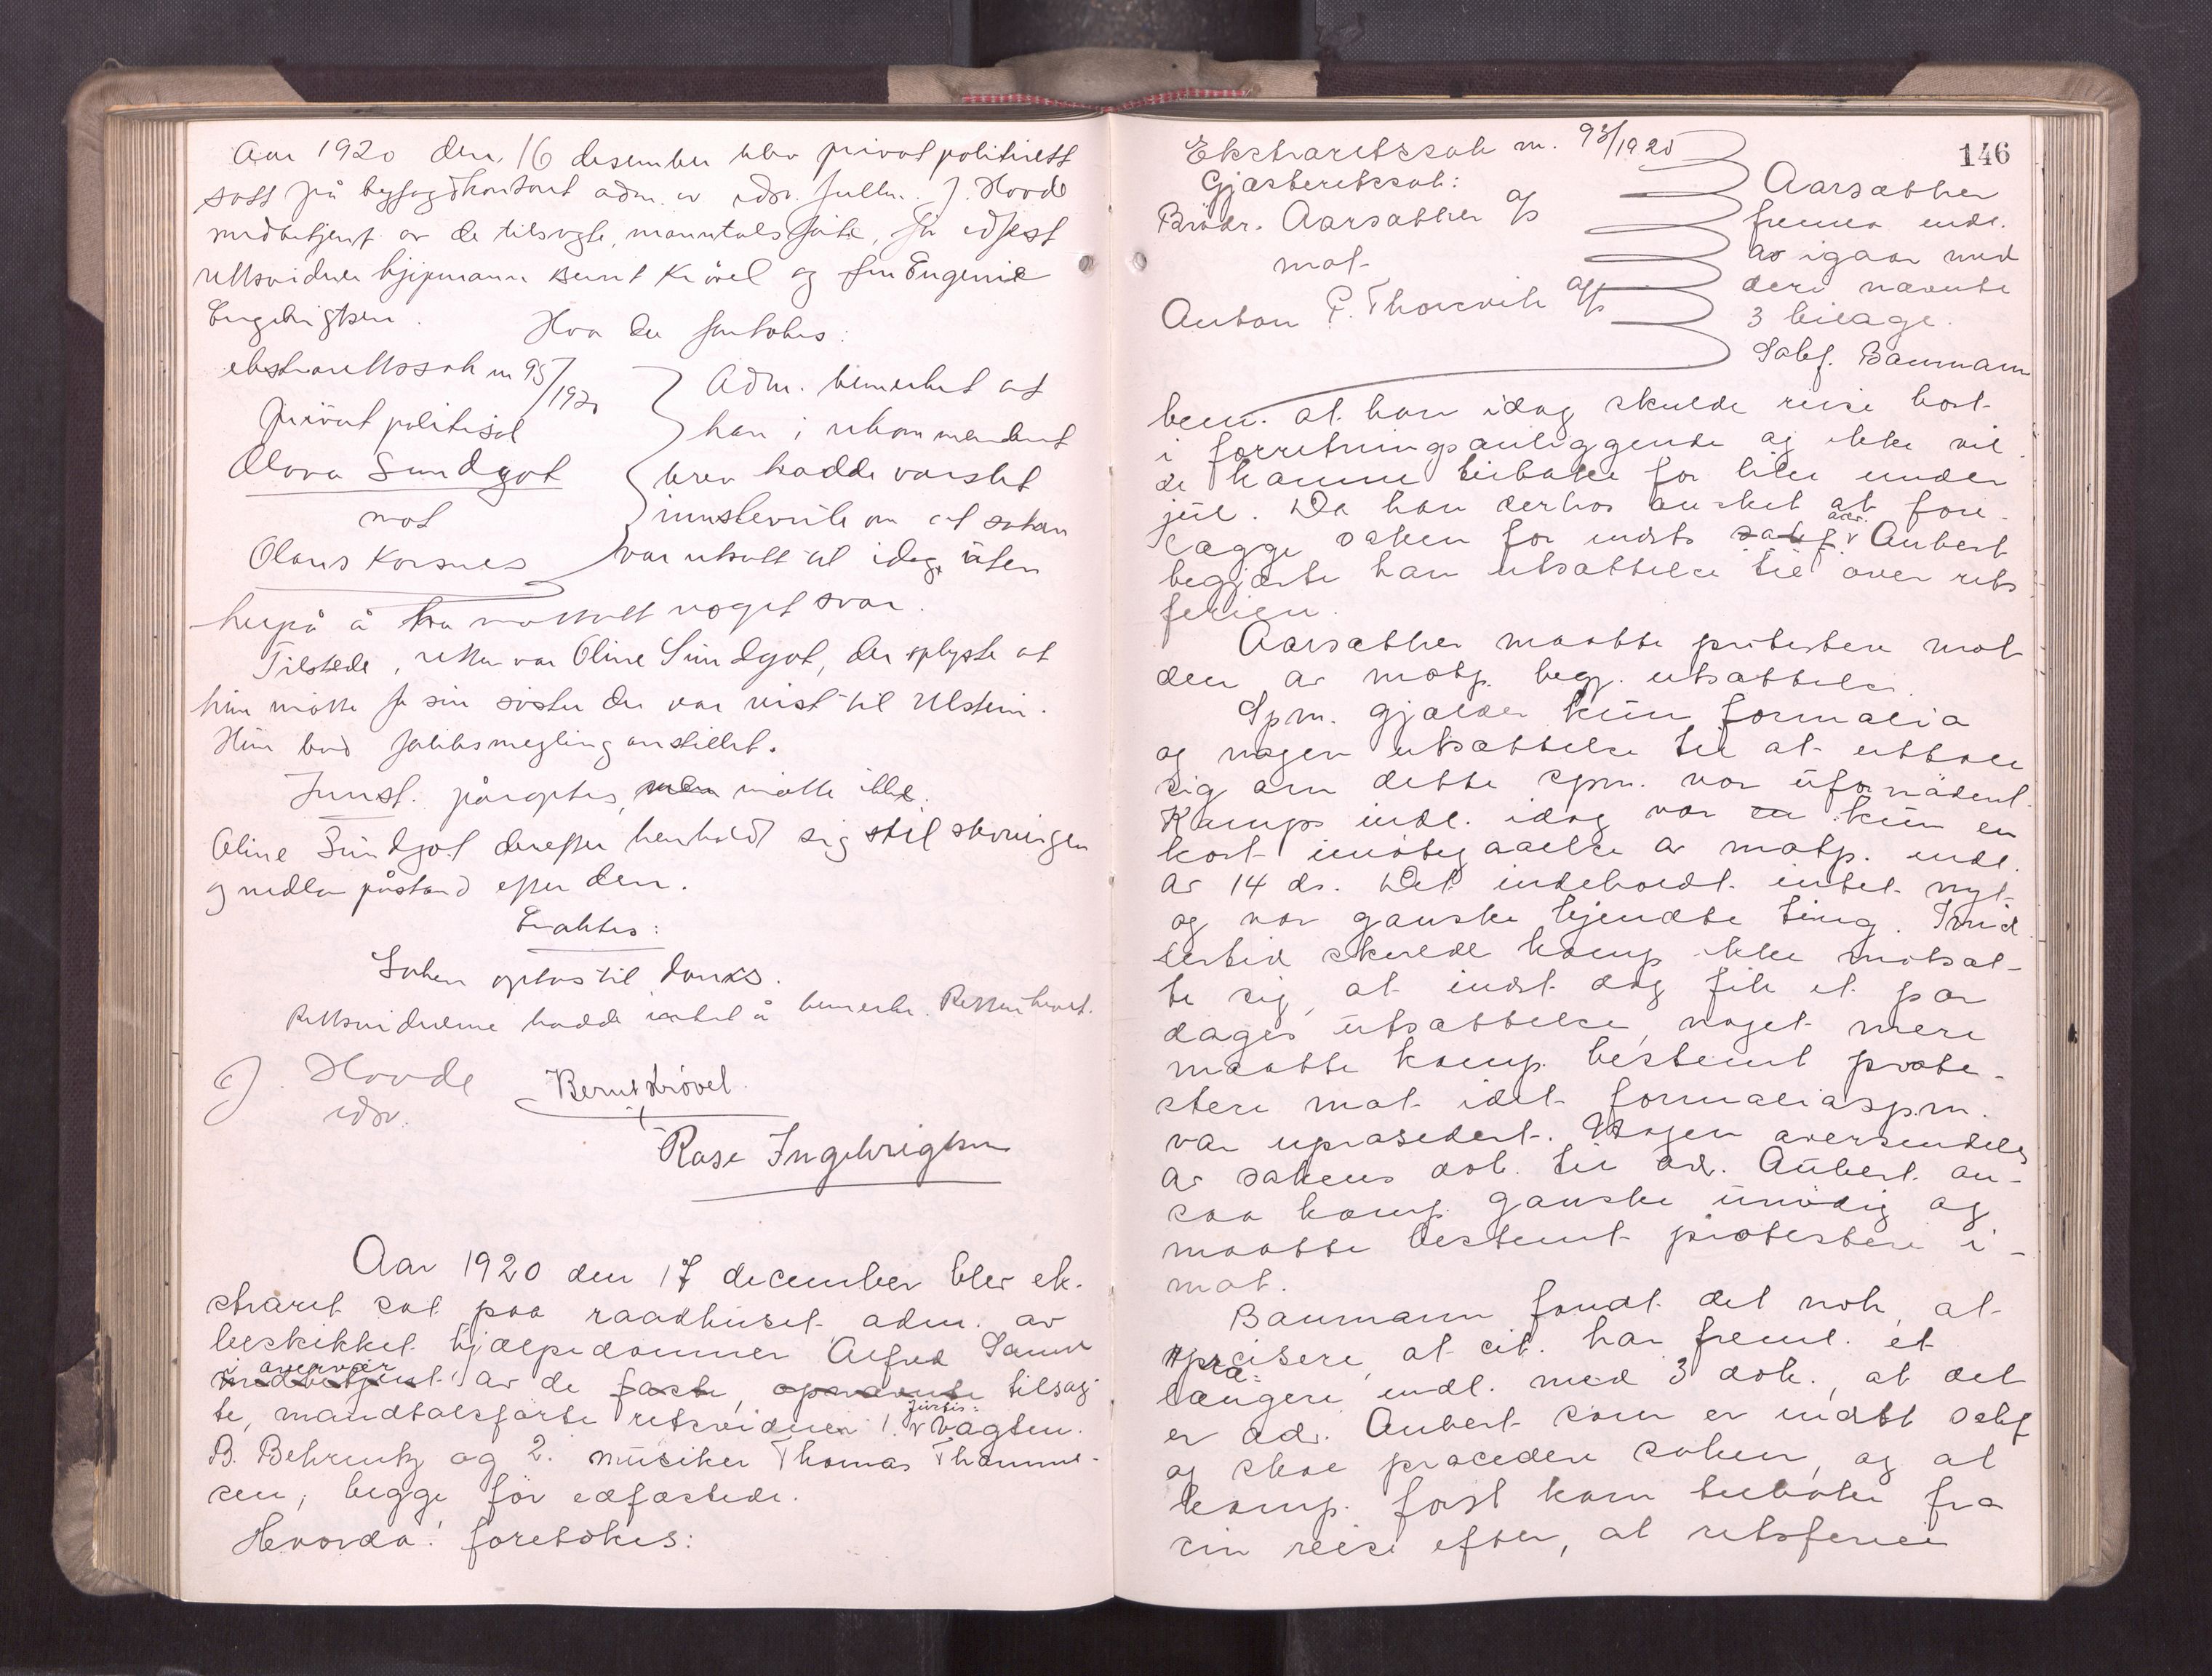 Aar 1920 den 16 desember blev privat politirett
satt på byfogdkontoret adm. av edsv. fullm. J. Hovde
medbetjent av de tilsagte, manntalsførte, før edfest
rettsvidner kjøpmann Bernt Krövel og fru Eugenie
Engebrigtsen.
Hvor da foretokes:
ekstrarettssak nr 95/1920
privat politisak
Olava Sundgot
mot
Olaus Korsnes
Adm. bemerket at
han i rekommandert
brev hadde varslet
innstevnte om at saken
var utsatt til idag, uten
herpå å ha mottatt noget svar.
Tilstede i retten var Oline Sundgot, der oplyste at
hun møtte for sin søster der var reist til Ulstein.
Hun bad forliksmegling anstillet.
Innst. påroptes, men møtte ikke.
Oline Sundgot derefter henholdt sig til stevningen
og nedla påstand efter den.
Eraktes:
Saken optas til doms.
Rettsvidnene hadde intet å bemerke. Retten hevet.
J. Hovde
edsv.
Bernt Krövel
Rase Ingebrigtsen
Aar 1920 den 17 december blev ek-
straret sat paa raadhuset adm. av
beskikket hjælpedommer Alfred
i overvær
medbetjent av de faste, opnævnte tilsag-
te, mandtalsførte retsvidner 1. justis:
vagtm.
B. Behrentz og 2. musiker Thomas Thomme-
sen, begge før edfæstede.
Hvorda foretokes:
146
Ekstraretssak nr. 93/1920
Gjæsteretssak:
Brødr. Aarsæther A/S
mot
Anton P. Thorsvik A/S
Aarsæther
fremla indl.
av igaar med
deri nævnte
3 bilage.
Sakf. Baumann
bem. at han idag skulde reise bort
i forretningsanliggende og ikke vil-
de komme tilbake før like under
jul. Da han derhos ønsket at fore-
lægge saken for indst. sakf. adv. Aubert
begjærte han utsættelse til over rets-
ferien.
Aarsæther maatte protestere mot
den av motp. begj. utsættelse.
Spm. gjælder kun formalia
og nogen utsættelse til at uttale
sig om dette spm. var ufornødent.
Komps indl. idag var en kun en
kort imøtegaaelse av motp. indl.
av 14 ds. Det indeholdt intet nyt
og var ganske kjendte ting. Imid-
lertid skulde komp ikke motsæt-
te sig, at indst. dog fik et par
dages utsættelse, noget mere
maatte komp. bestemt prote-
stere mot idet formaliaspm.
var upræsedert. Nogen oversendelse
av sakens dok. til adv. Aubert an-
saa komp. ganske unødig og
maatte bestemt protestere i-
mot.
Baumann fandt det nok, at
præcisere, at cit. har freml. et
længere indl. med 3 dok., at det
er adv. Aubert som er indst. sakf.
og skal procedere saken, og at
komp. først kom tilbake fra
sin reise efter, at retsferien